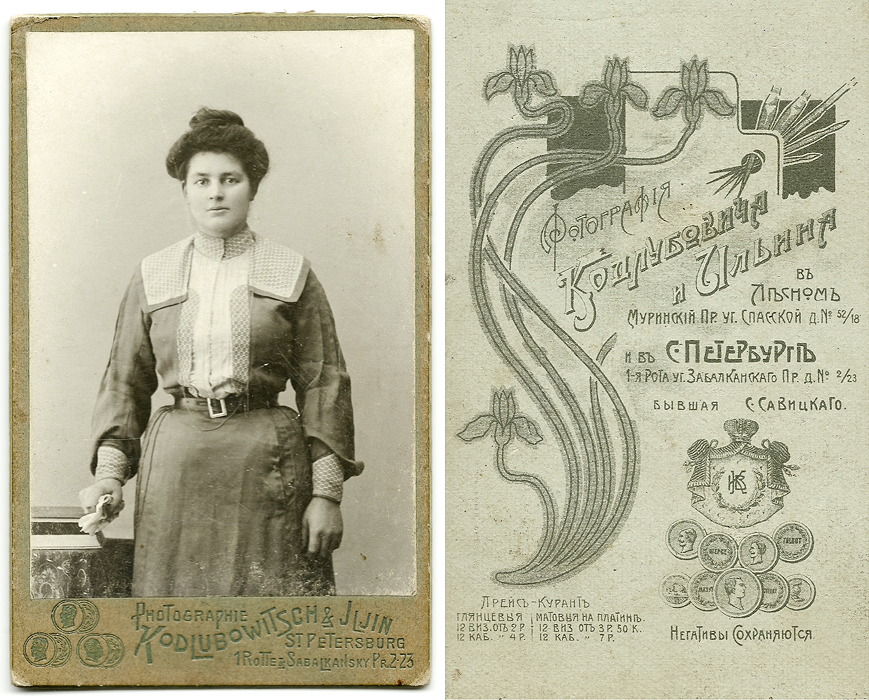 PHOTOGRAPHIE
KODLUBOWITSCH & JLJIN
ST PETERSBURG
1 ROTTE Z SABALKANSKY PR. 2-23
Фотографія
Кодлубовича
и Ильина
въ
Лѣсномъ
Муринскій Пр. уг. Спасской д. № 52/18
и въ С-Петербургъ
1-я Рота уг. Забалканскаго Пр. д. № 2/23
бывшая С. Савицкаго.
Прейсъ-Курантъ
глянцевыя матовыя на платин.
12 виз. отъ 2 р. 12 виз отъ 3 р. 50 к.
12 каб. " 4 р. 12 каб. " 7 р.
Негативы Сохраняются